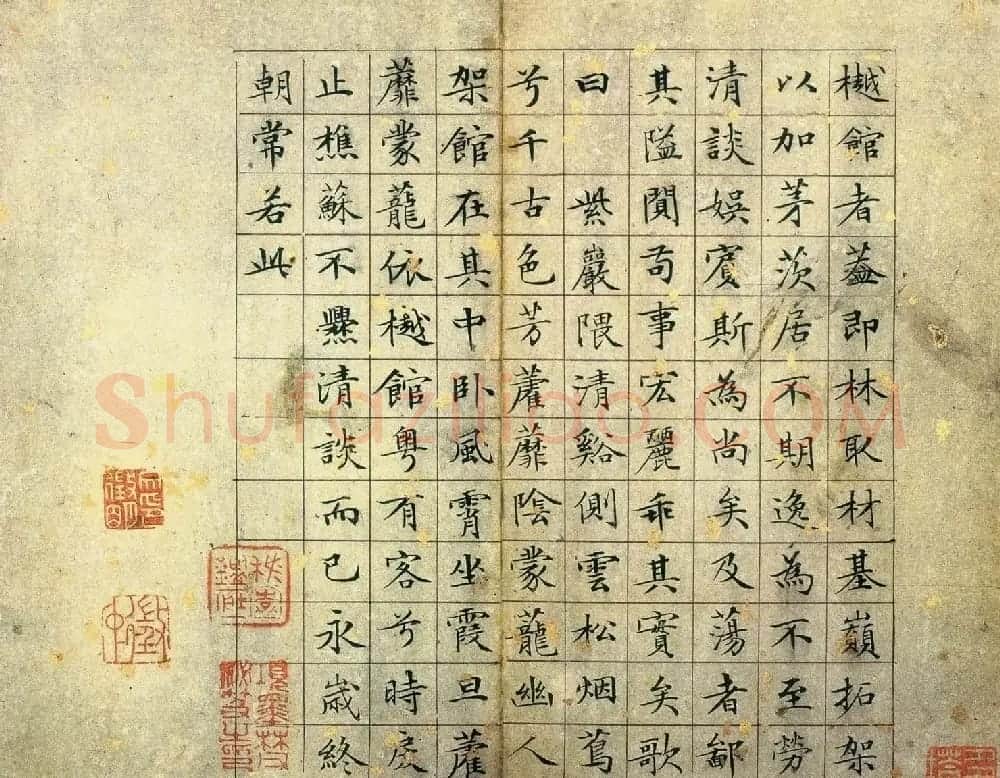 樾館者葢即林取材基巔拓架
以加茅茨居不期逸為不至勞
清談娛賓斯為尚矣及蕩者鄙
其隘閴苟事宏麗乖其實矣歌
曰 紫巖隈清谿側雲松烟蔦
兮千古色芳藿蘼陰蒙蘢幽人
架館在其中卧風霄坐霞旦藿
蘼蒙蘢依樾館粤有客兮時戾
止樵蘇不爨清談而已永歲終
朝常若此
Shufaziliao.COM